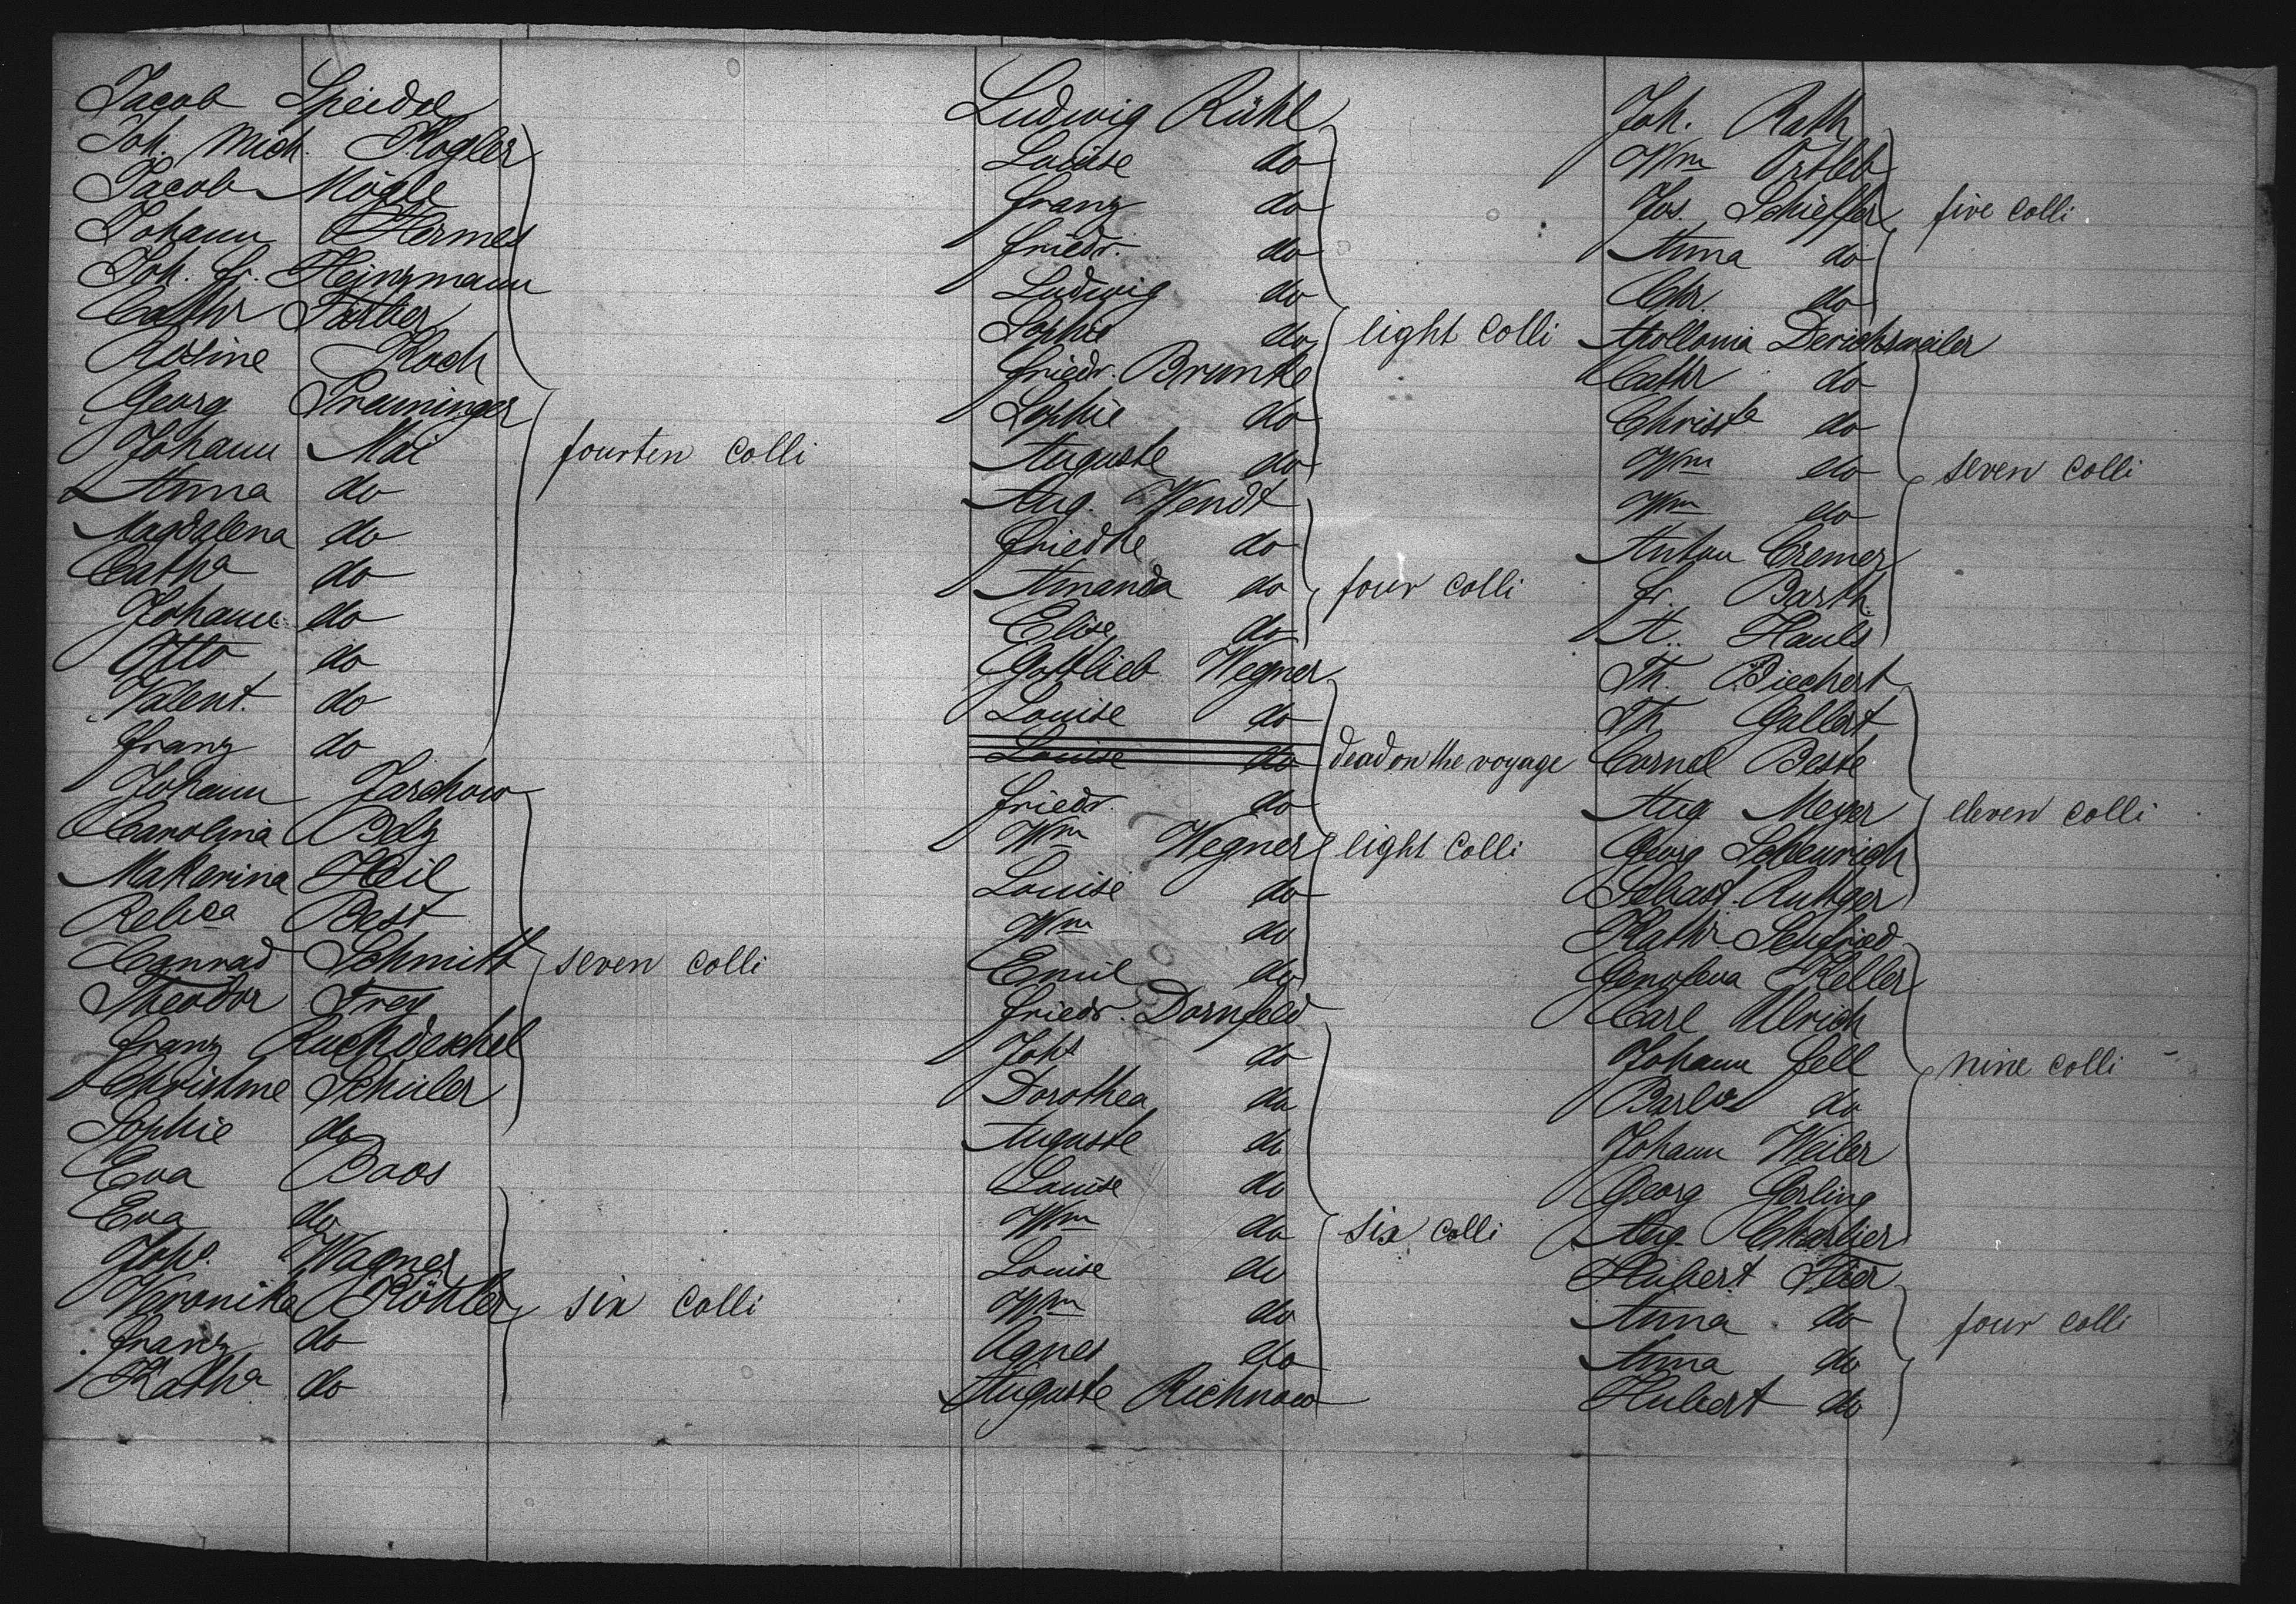 Jacob Speidel
Joh. Mich. Kogler
Jacob Mögle
Johann Hermes
Joh. Fr. Heinzmann
Cathr Farber
Rosine Koch
Georg Preuninger
Johann Mai
fourten Colli
Anna do
Magdalena do
Catha do
Johann do
Otto do
Valent. do
Franz do
Johann Jarchow
Carolina Belz
Makarina Heil
Rebca Best
Conrad Schmitt
seven colli
Theodor Frey
Franz Ruckdeschel
Christine Schüler
Sophie do
Eva Baos
Eva do
Joh. Wagner
Veronika Köhler
six colli
Franz do
Katha do
Ludwig Rühl
Louise do
Franz do
Friedr. do
Ludwig do
Sophie do
eight Colli
Friedr. Brunke
Sophie do
Auguste do
Aug. Wendt
Friedke do
Amanda do
four colli
Elise do
Gottlieb Wegner
Louise do
Louise do
dead on the voyage
Friedr. do
Wm Wegner
eight Colli
Louise do
Wm do
Emil do
Friedr. Dornfeld
Joh do
Dorothea do
Auguste do
Louise do
Wm do
six colli
Louise do
Wm do
Agnes do
Auguste Richnow
Joh. Rath
Wm Ortleb
Jos. Schieffer
five colli
Anna do
Chr. do
Apollonia Derichsweiler
Cathr do
Christa do
Wm do
seven colli
Wm do
Anton Cremer
Fr. Barth
A. Hauls
Th. Biechert
Th Gallert
Cornel Beste
Aug Meyer
eleven colli
Georg Scheurich
Sebast. Ruttger
Kathr. Seufried
Genofeva Keller
Carl Ulrich
Johann Fell
nine colli
Barba do
Johann Weiler
Georg Gerling
Aug Charlier
Hubert Flier
Anna do
four colli
Anna do
Hubert do